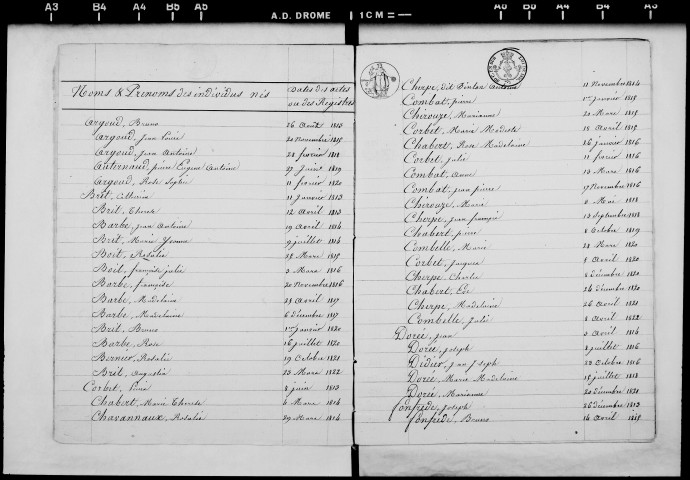 A3 B4 A4 B5 A5 A.D. DROME 1CM A6 B5 A4 B4 A3
Noms & Prenoms des individus nés
Dates des actes
ou des Registres
Argoud, Bruno 26 Août 1813
Argoud, Jean Louis 20 novembre 1815
Argoud, Jean Antoine 28 février 1818
Auternaud, pierre Eugène Antoine 27 Juin 1819
Argoud, Rose Sophie 11 février 1820
Brét, Catherine 11 janvier 1813
Brét, Therese 12 Avril 1813
Barbe, Jean Antoine 19 avril 1814
Brét, Marie Jeanne 9 juillet 1814
Boit, Rosalie Mars 1815
Boit, françois julie 3 Mars 1816
Barbe, françoise 20 Novembre 1816
Barbe, Madelaine 28 avril 1817
Barbe, Madelaine 6 décembre 1817
Brét, Bruno 1er Janvier 1820
Barbe, Rose 16 juillet 1820
Bernier, Rosalie 19 Octobre 1821
Brét, Augustin 23 Mars 1822
Corbet, 8 juin 1813
Chabert, Marie Therese 4 Mars 1814
Chavannaux, Rosalie 29 Mars 1814
Cherpe, dit Antoine 11 Novembre 1814
Combat, pierre 1er janvier 1815
Chirouze, Marianne 20 Mars 1815
Corbet, Marie Modeste 18 Avril 1815
Chabert, Rose Madelaine 26 janvier 1816
Corbet, Julie 11 février 1816
Combat, Anne 13 Mars 1816
Combat, jean pierre 17 Novembre 1816
Chirouze, Marie Mai 1818
Cherpe, jean françois 13 Septembre 1818
Chabert, pierre 8 Octobre 1819
Combelle, Marie 28 Mars 1820
Corbet, Jacques 8 Avril 1820
Cherpe, Charles 8 décembre 1820
Chabert, 24 décembre 1820
Cherpe, Madelaine 26 Avril 1821
Combelle, Julie 8 Avril 1822
Dorée, jean 3 Avril 1814
Dorée, joseph 2 juillet 1816
Didier, jean joseph 23 Octobre 1816
Dorée, Marie Madelaine 15 juillet 1818
Dorée, Marianne 20 décembre 1821
Fonfrède, Joseph 26 décembre 1813
Fonfrède, Bruno 14 avril 1815